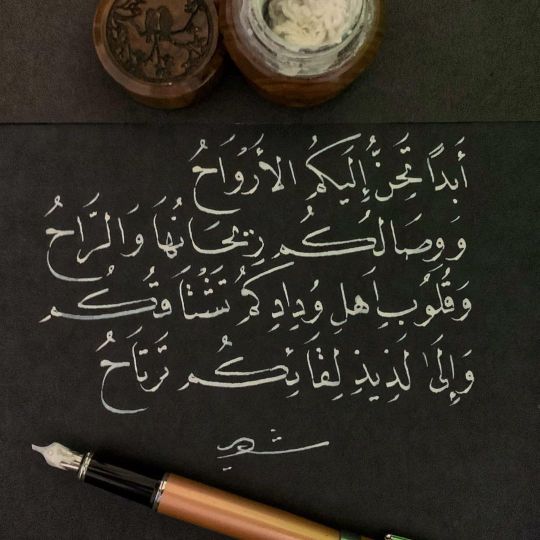 أَبَدًا تَحِنُّ إِلَيكُمُ الأَرْوَاحُ
وَوِصَالُكُم رِيحَانُهَا وَالرَّاحُ
وَقُلُوبُ اَهلِ وُدِادِكُمْ تَشْتَاقُكُم
وَإِلَىٰ لَذِيذِ لِقَائِكُم تَرتَاحُ